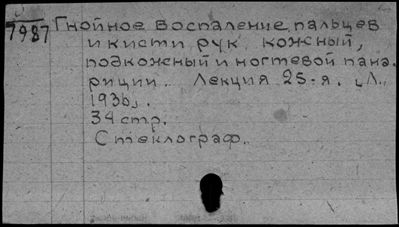 7987 Гнойное воспаление пальцев
и кисти рук кожный,
подкожный и ногтевой пана-
риции. Лекция 25-я. Л.,
1936.
34 стр.
Стеклограф.